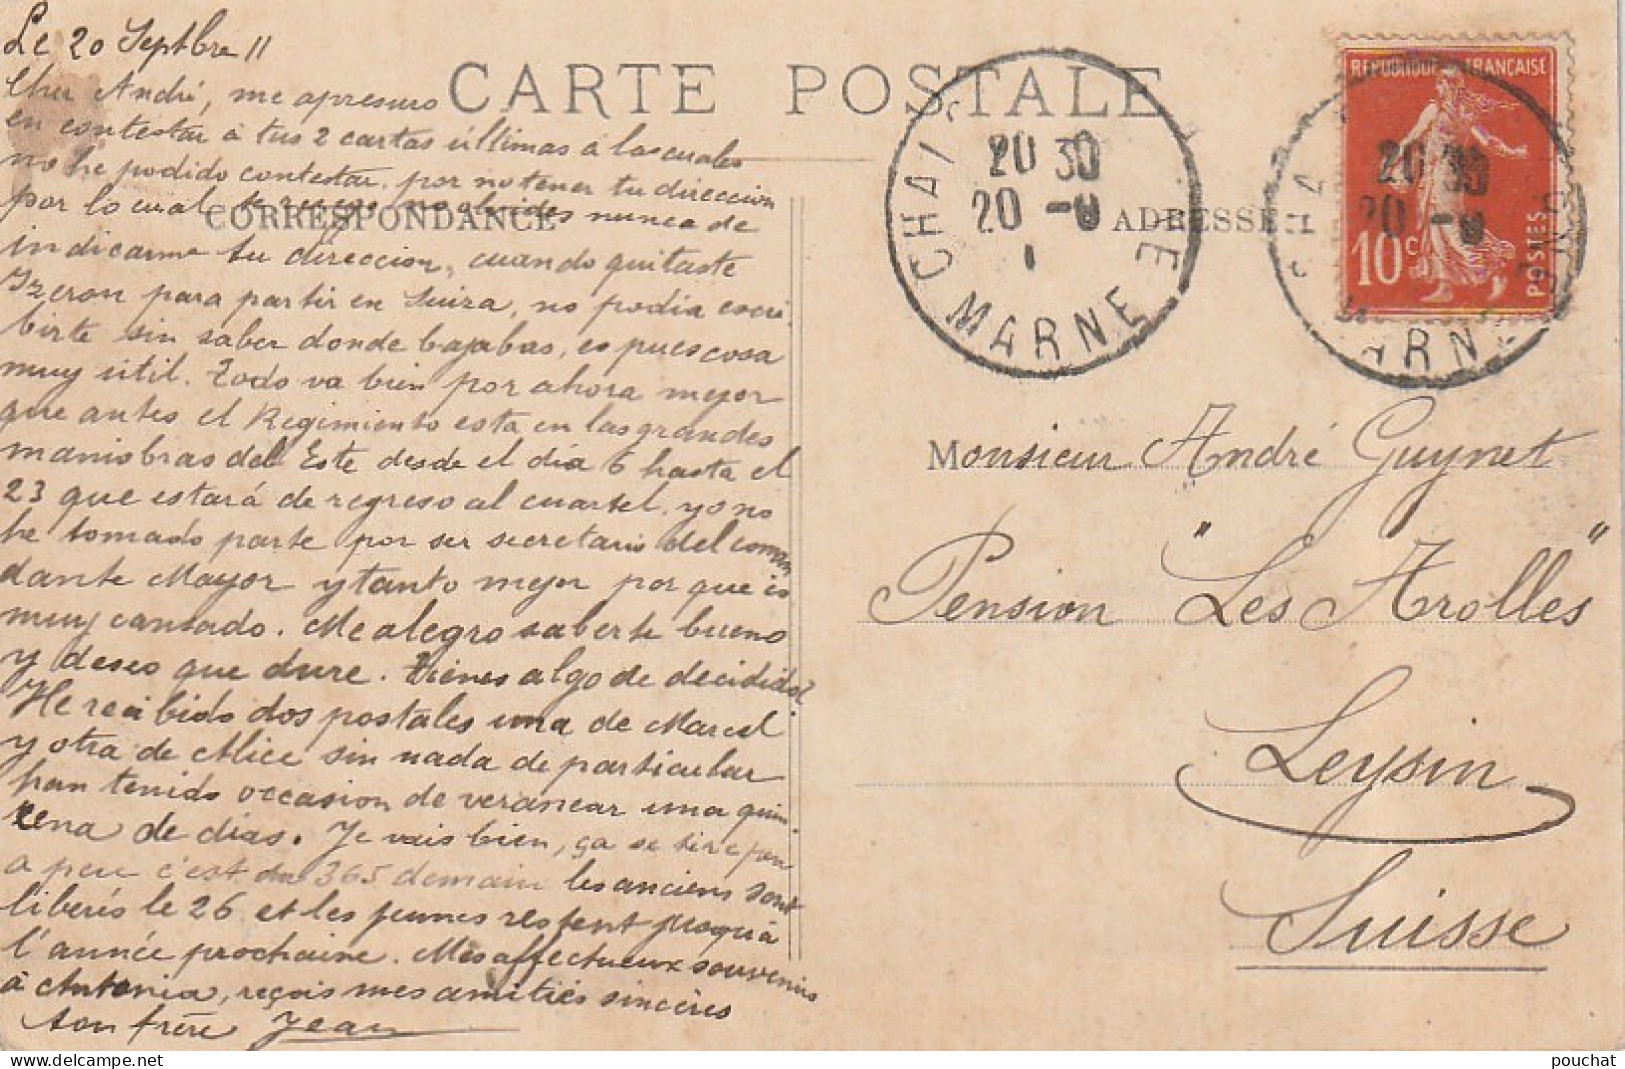 Le 20 Septbre 11
CARTE POSTALE
Cher André, me apresuro
en contestar à tus 2 cartas últimas á las cuales
no he podido contestar, por no tener tu direccion
por lo cual te ruego no olvides nunca de
CORRESPONDANCE
indicarme tu direccion, cuando quitaste
Izeron para partir en Suiza, no podia escri-
birte sin saber donde bajabas, es pues cosa
muy útil. Todo va bien por ahora mejor
que antes el Regimiento esta en las grandes
maniobras del Este desde el día 6 hasta el
23 que estará de regreso al cuartel, yo no
he tomado parte por ser secretario del coman
dante Mayor y tanto mejor por que es
muy cansado. Me alegro saberte bueno
y deseo que dure. Tienes algo de decidido?
He recibido dos postales una de Marcel
y otra de Alice sin nada de particular
han tenido occasion de veranear una quin-
cena de dias. Je vais bien, ça se tire peu
a peu c'est du 365 demain les anciens sont
libérés le 26 et les jeunes restent jusqu'à
l'année prochaine. Mes affectueux souvenirs
à Antonia, reçois mes amitiés sincères
ton frère Jean
CHALS
20 30
20 -9
1
MARNE
ADRESSE
REPUBLIQUE FRANÇAISE
10c
POSTES
20 30
20 -9
MARNE
Monsieur André Guynet
Pension "Les Arolles"
Leysin
Suisse
pouchat